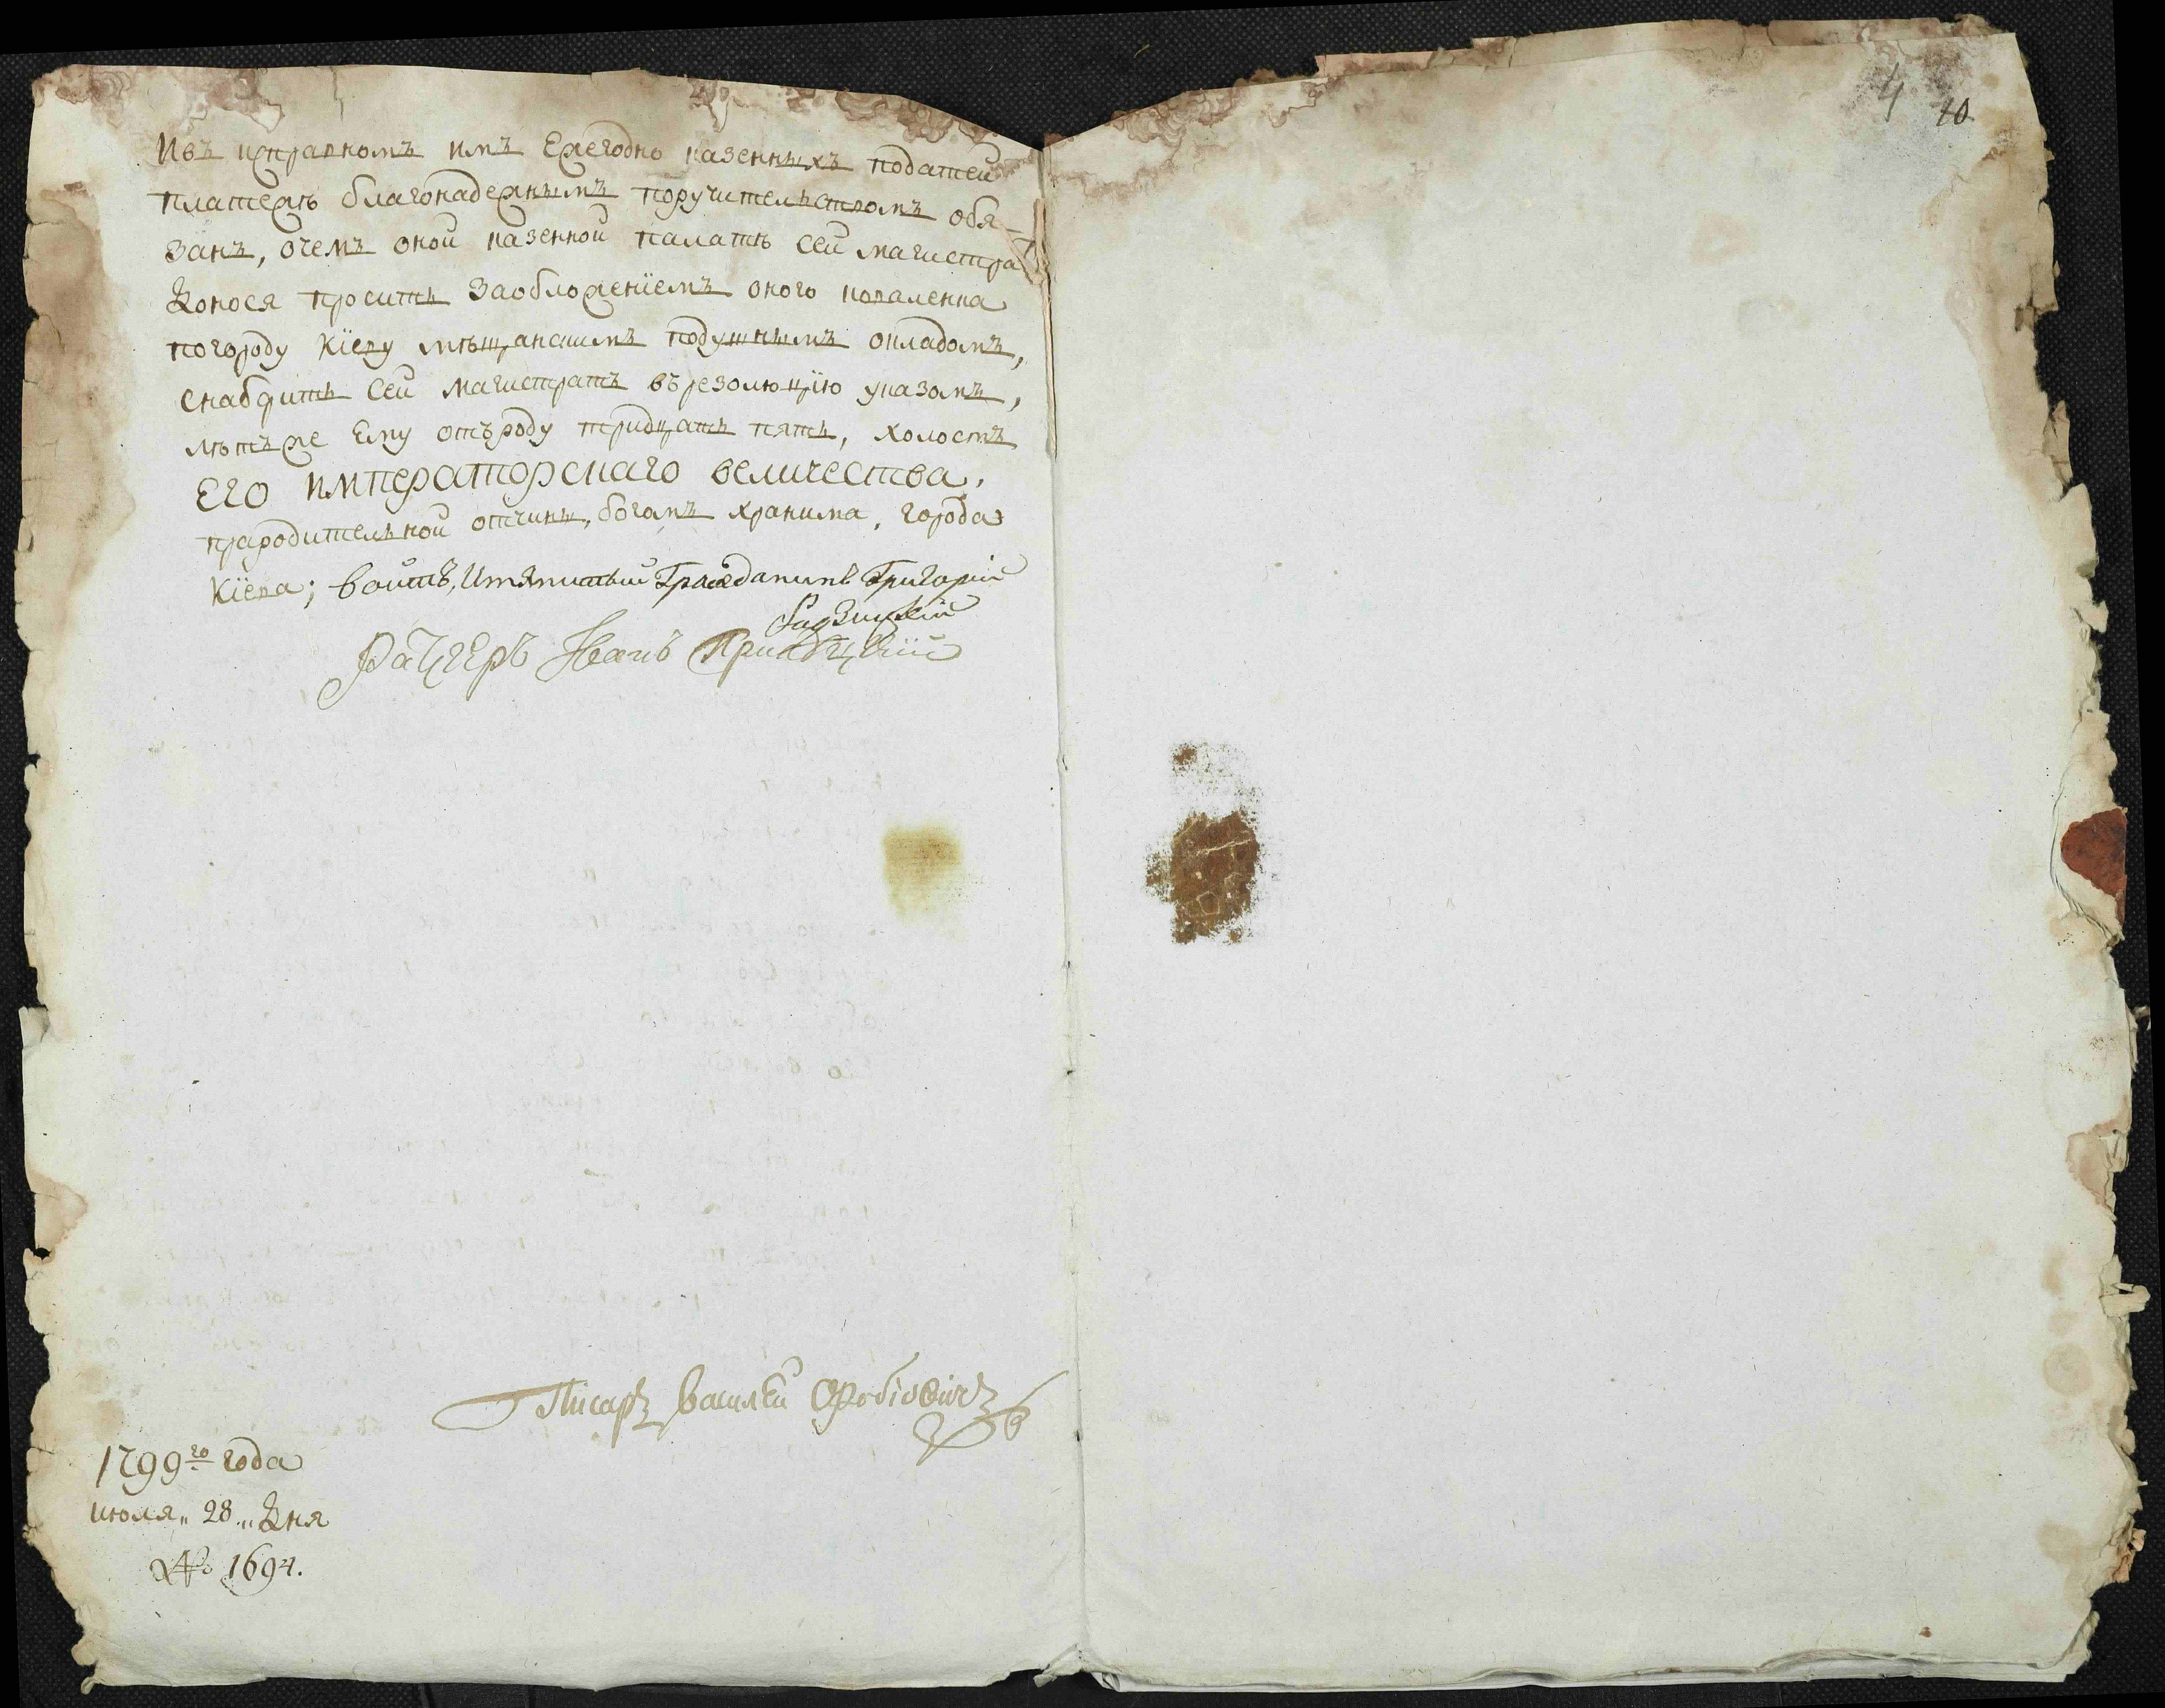 4 10
Ивъ исправномъ имъ Ежегодно казенныхъ податей
платежѣ благонадежнымъ поручительствомъ обя-
занъ, очемъ оной казенной палатѣ сей магистра
донося проситъ заобложенïемъ оного коваленка
погороду Кïеву мѣщанскимъ подушнымъ окладомъ,
снабдить сей магистратъ върезолюцïю указомъ,
лѣтъже Ему отъроду тридцать пять, холостъ
Его императорскаго величества,
прародительной отчины, богомъ хранима, города
Кïева; войтъ, Имянитый Гражданинъ Григорій
Рацгеръ Іванъ
Писарь Василей
1799го года
июля „ 28 „ дня
№ 1694.